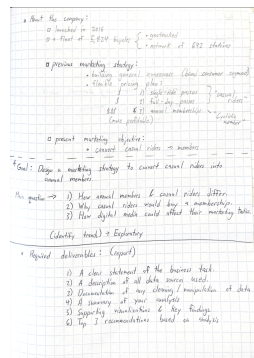 • About the company:
□ launched in 2016
□ a fleet of 5,824 bicycles { • geotracked
• network of 692 stations
□ previous marketing strategy:
• building general awareness (broad consumer segment)
• flexible pricing plan:
1) single-ride passes
2) full-day passes } "casual riders"
3) annual memberships → "Cyclistic member"
(more profitable)
□ present marketing objective:
• convert casual riders → members
Goal: Design a marketing strategy to convert casual riders into
annual members.
Main question → 1) How annual members & casual riders differ.
2) Why casual riders would buy a membership.
3) How digital media could affect their marketing tactics.
(identify trends) → Exploratory
• Required deliverables: (report)
1) A clear statement of the business task.
2) A description of all data sources used.
3) Documentation of any cleaning / manipulation of data
4) A summary of your analysis
5) Supporting visualisations & key findings
6) Top 3 recommendations based on analysis